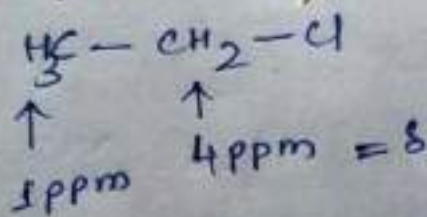 H3C - CH2 - Cl
↑ ↑
1ppm 4ppm = δ